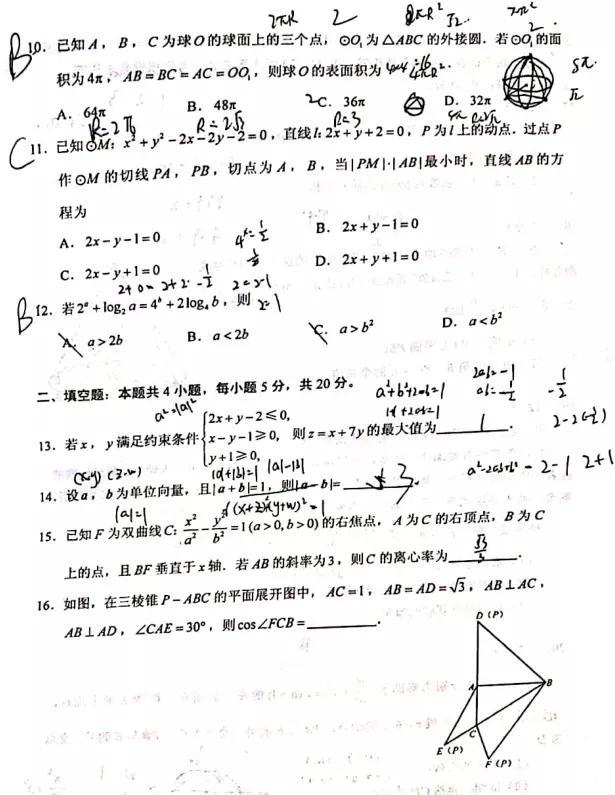 2πR 2 πR²
B 10. 已知 A，B，C 为球 O 的球面上的三个点，⊙O₁ 为 △ABC 的外接圆．若 ⊙O₁ 的面
积为 4π，AB=BC=AC=OO₁，则球 O 的表面积为 4πR².
A. 64π B. 48π C. 36π D. 32π
R=2√3 R=3
C 11. 已知 ⊙M: x²+y²−2x−2y−2=0，直线 l: 2x+y+2=0，P 为 l 上的动点．过点 P
作 ⊙M 的切线 PA，PB，切点为 A，B，当 |PM|·|AB| 最小时，直线 AB 的方
程为
A. 2x−y−1=0 B. 2x+y−1=0
C. 2x−y+1=0 D. 2x+y+1=0
B 12. 若 2ᵃ+log₂a=4ᵇ+2log₄b，则
A. a>2b B. a<2b C. a>b² D. a<b²
二、填空题：本题共 4 小题，每小题 5 分，共 20 分。
a²=|a|² a²+b²+2ab=1 2ab=-1 ab=-1/2 -1/2
13. 若 x，y 满足约束条件 {2x+y−2≤0, x−y−1≥0, y+1≥0, 则 z=x+7y 的最大值为 1 .
14. 设 a，b 为单位向量，且 |a+b|=1，则 |a−b|= √3 .
|a|=1 (x+z)²+(y+w)²=1
15. 已知 F 为双曲线 C: x²/a²−y²/b²=1(a>0,b>0) 的右焦点，A 为 C 的右顶点，B 为 C
上的点，且 BF 垂直于 x 轴．若 AB 的斜率为 3，则 C 的离心率为 √3/3 .
16. 如图，在三棱锥 P−ABC 的平面展开图中，AC=1，AB=AD=√3，AB⊥AC，
AB⊥AD，∠CAE=30°，则 cos∠FCB= .
D (P)
A
B
C
E (P)
F (P)